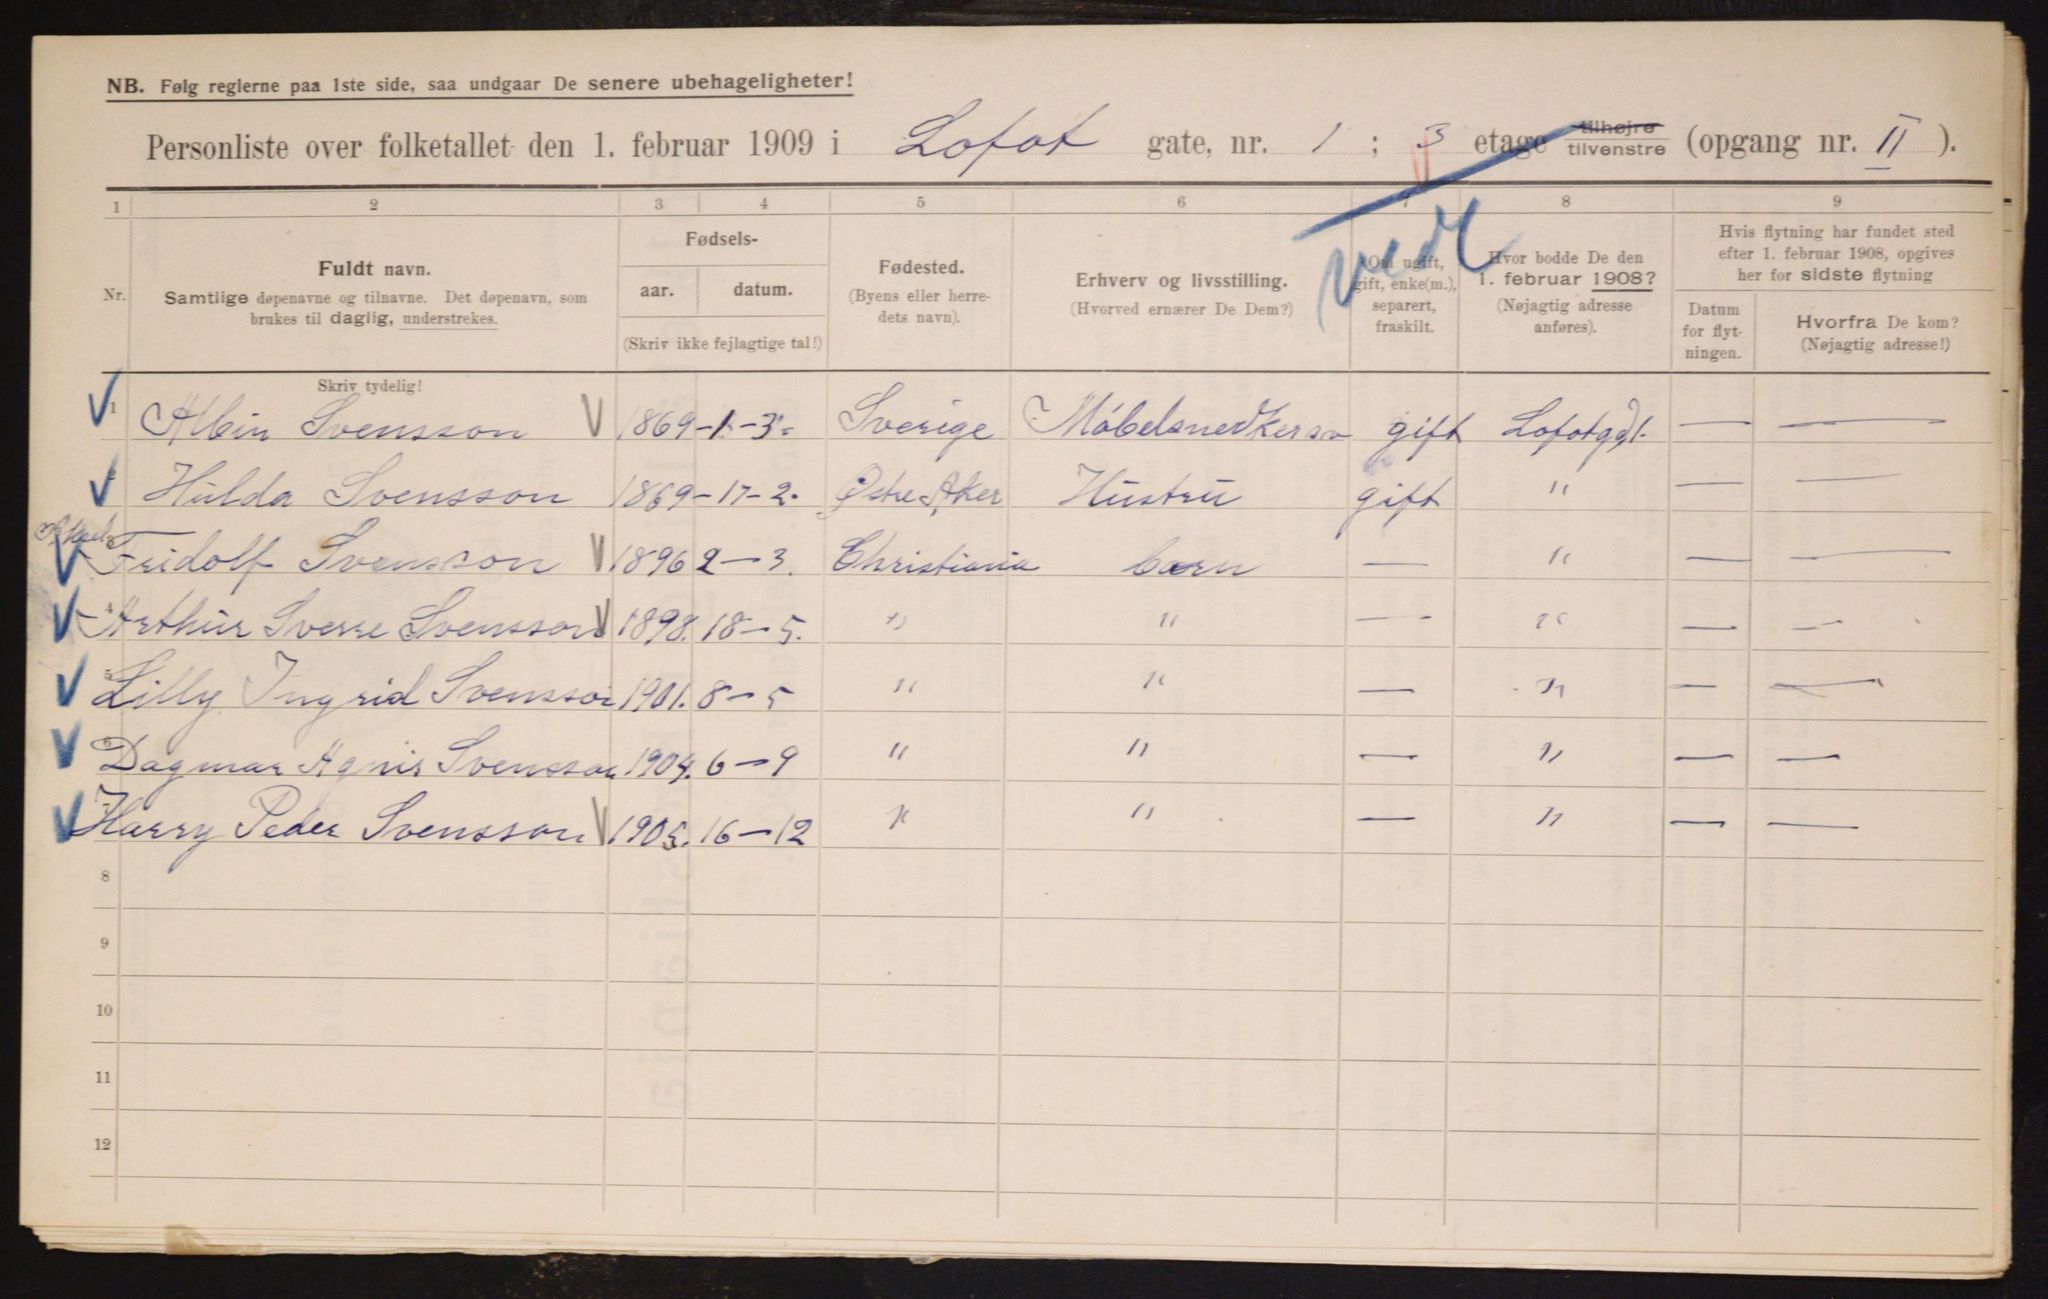 NB. Følg reglerne paa 1ste side, saa undgaar De senere ubehageligheter!
Personliste over folketallet den 1. februar 1909 i Lofot gate, nr. 1 ; 3 etage tilhøjre tilvenstre (opgang nr. II ).
1 2 3 4 5 6 7 8 9
Nr.
Fuldt navn.
Samtlige døpenavne og tilnavne. Det døpenavn, som
brukes til daglig, understrekes.
Fødsels-
aar. datum.
(Skriv ikke fejlagtige tal!)
Fødested.
(Byens eller herre-
dets navn).
Erhverv og livsstilling.
(Hvorved ernærer De Dem?)
Om ugift,
gift, enke(m.),
separert,
fraskilt.
Hvor bodde De den
1. februar 1908?
(Nøjagtig adresse
anføres).
Hvis flytning har fundet sted
efter 1. februar 1908, opgives
her for sidste flytning
Datum
for flyt-
ningen.
Hvorfra De kom?
(Nøjagtig adresse!)
Skriv tydelig!
1 Albin Svensson 1869 - 1 - 3. Sverige Möbelsnedkersv gift Lofotgd 1. — —
Hulda Svensson 1869 - 17 - 2. Østre Aker Hustru gift " — —
3 Fridolf Svensson 1896 2 - 3. Christiania barn — " — —
4 Arthur Sverre Svensson 1898. 18 - 5. " " — " — —
5 Lilly Ingrid Svensson 1901. 8 - 5 " " — " — —
Dagmar Agnis Svensson 1904. 6 - 9 " " — " — —
Harry Peder Svensson 1905. 16 - 12 " " — " — —
8
9
10
11
12